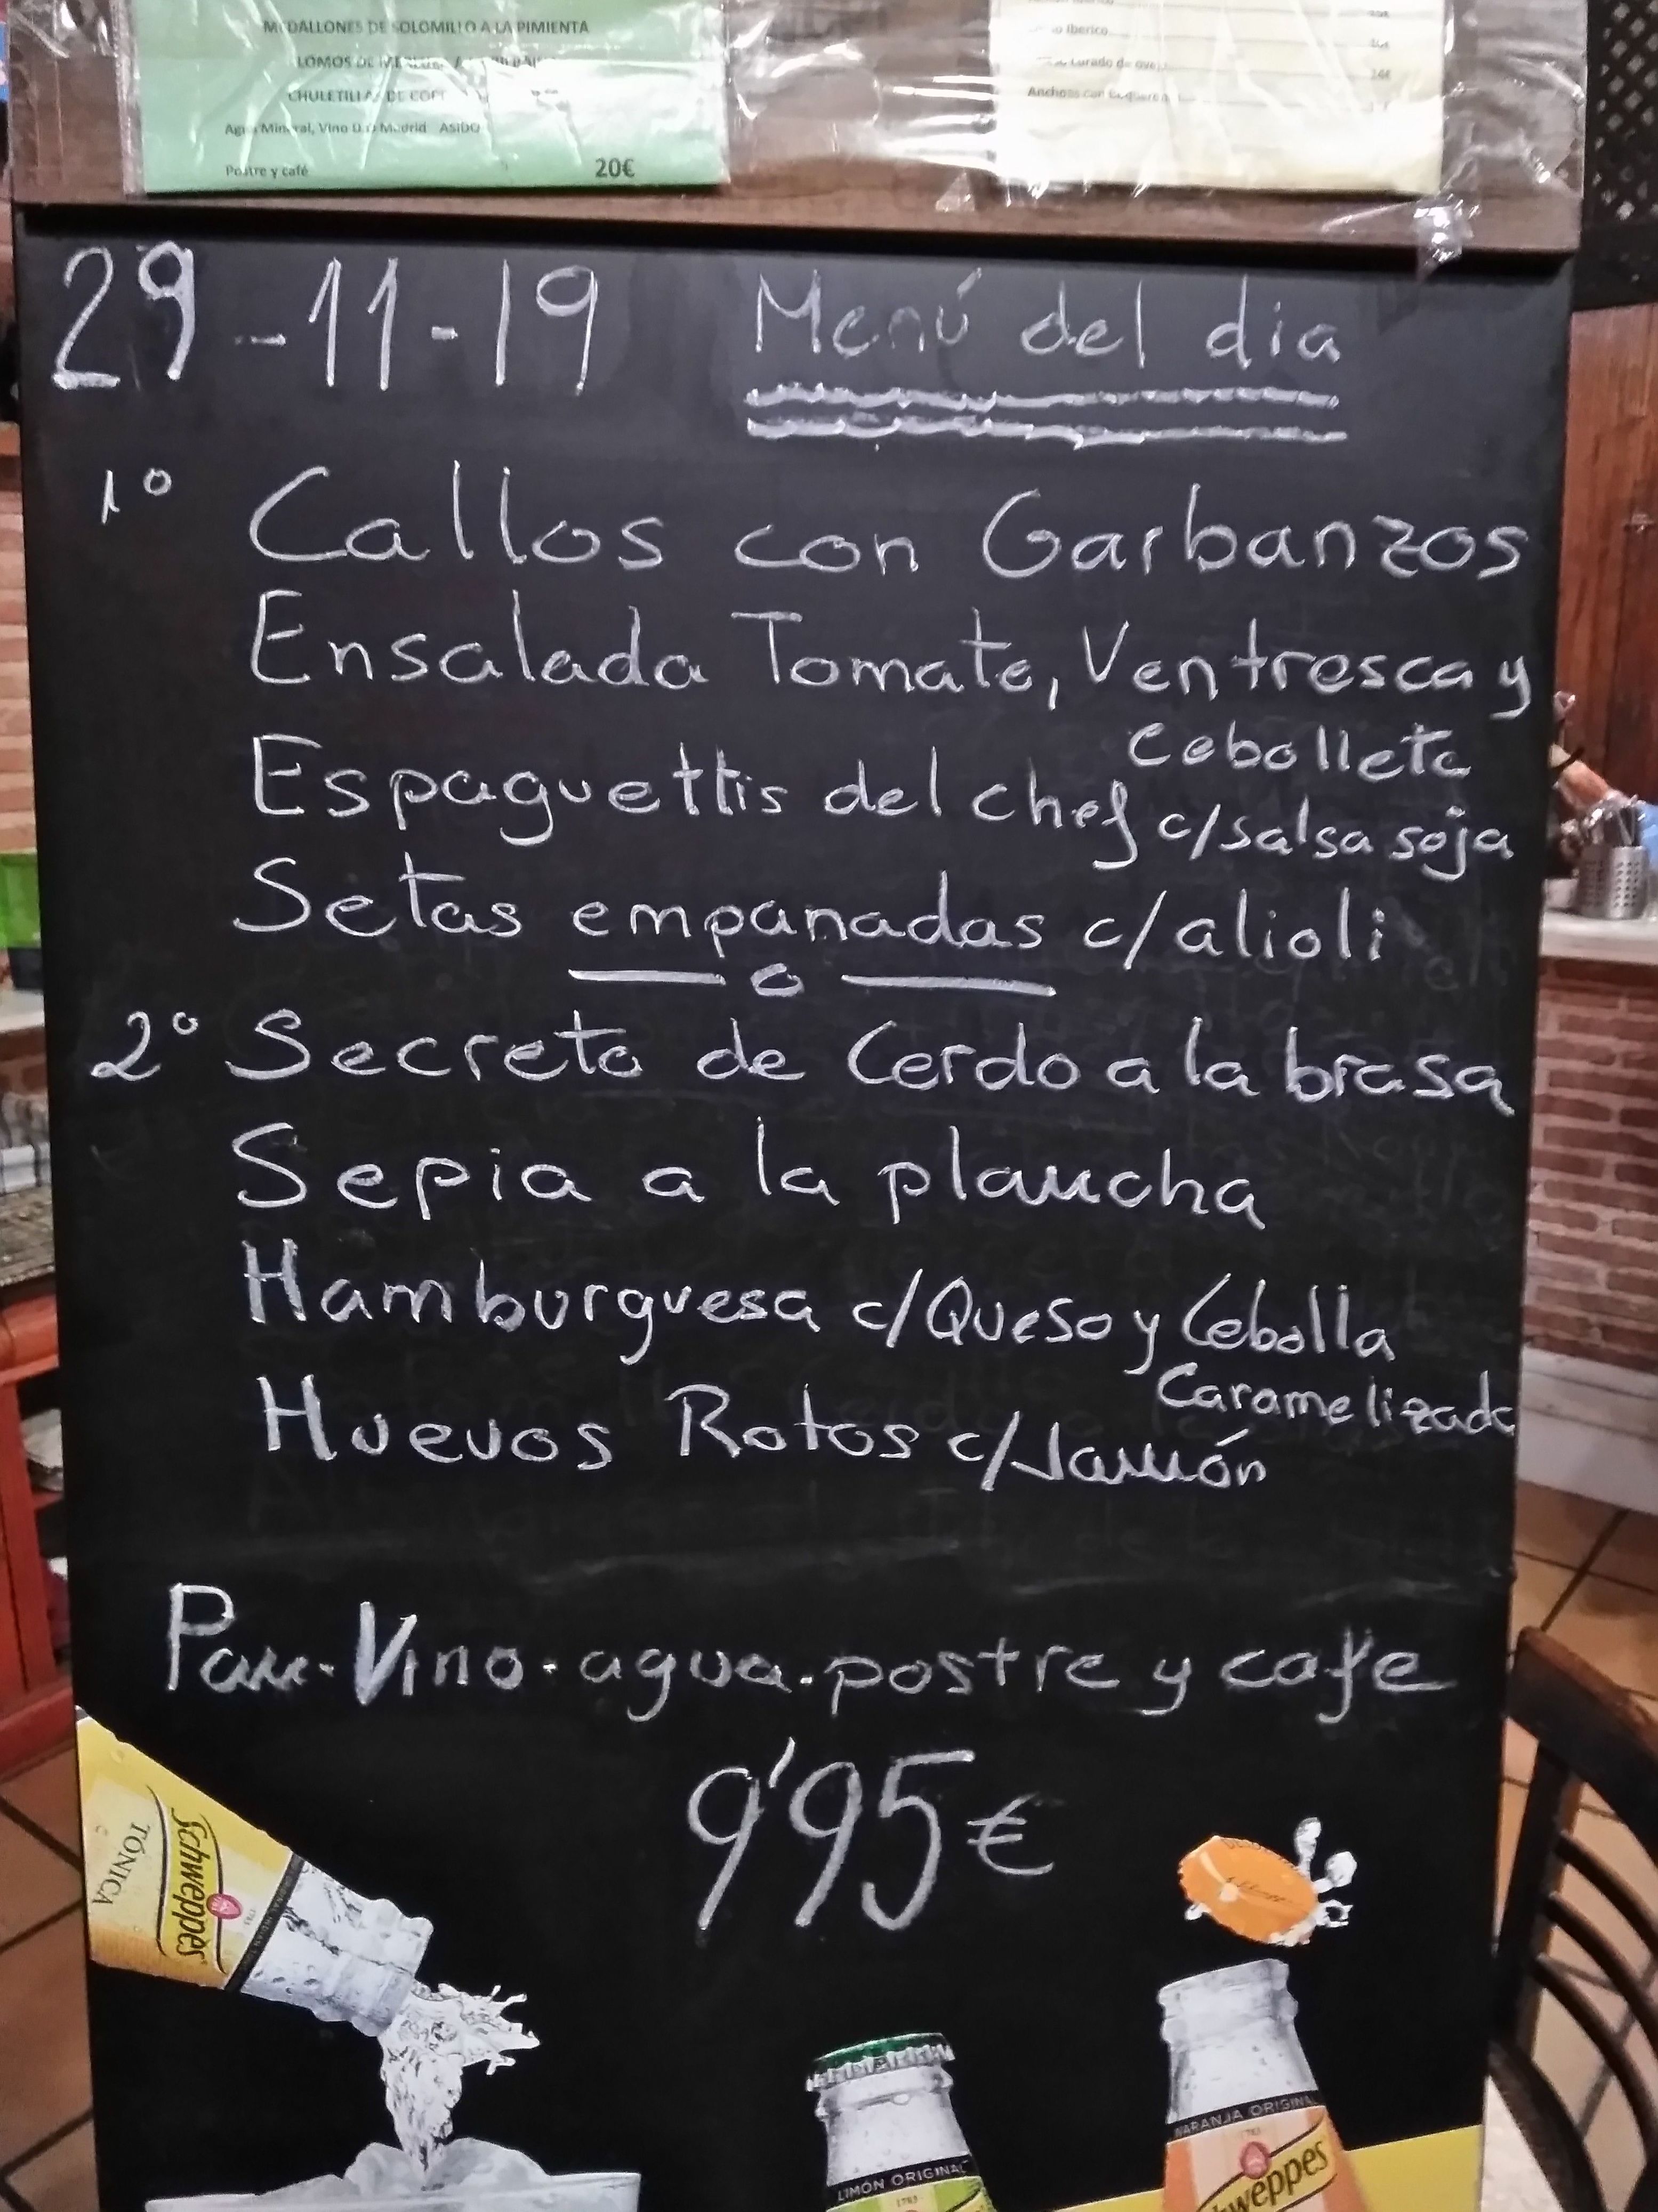 MEDALLONES DE SOLOMILLO A LA PIMIENTA
LOMOS DE
CHULETILLAS DE
Agua Mineral, Vino D.O Madrid ASIDO
Postre y café 20€
Iberico
curado de
Anchoas con
29-11-19 Menú del dia
1º Callos con Garbanzos
Ensalada Tomate, Ventresca y
Cebolleta
Espaguettis del chef c/salsa soja
Setas empanadas c/alioli
2º Secreto de Cerdo a la brasa
Sepia a la plancha
Hamburguesa c/Queso y Cebolla
Caramelizada
Huevos Rotos c/Jamón
Pan·Vino·agua·postre y cafe
9'95€
Schweppes
TÓNICA
1783
LIMÓN ORIGINAL
1783
NARANJA ORIGINAL
1783
Schweppes